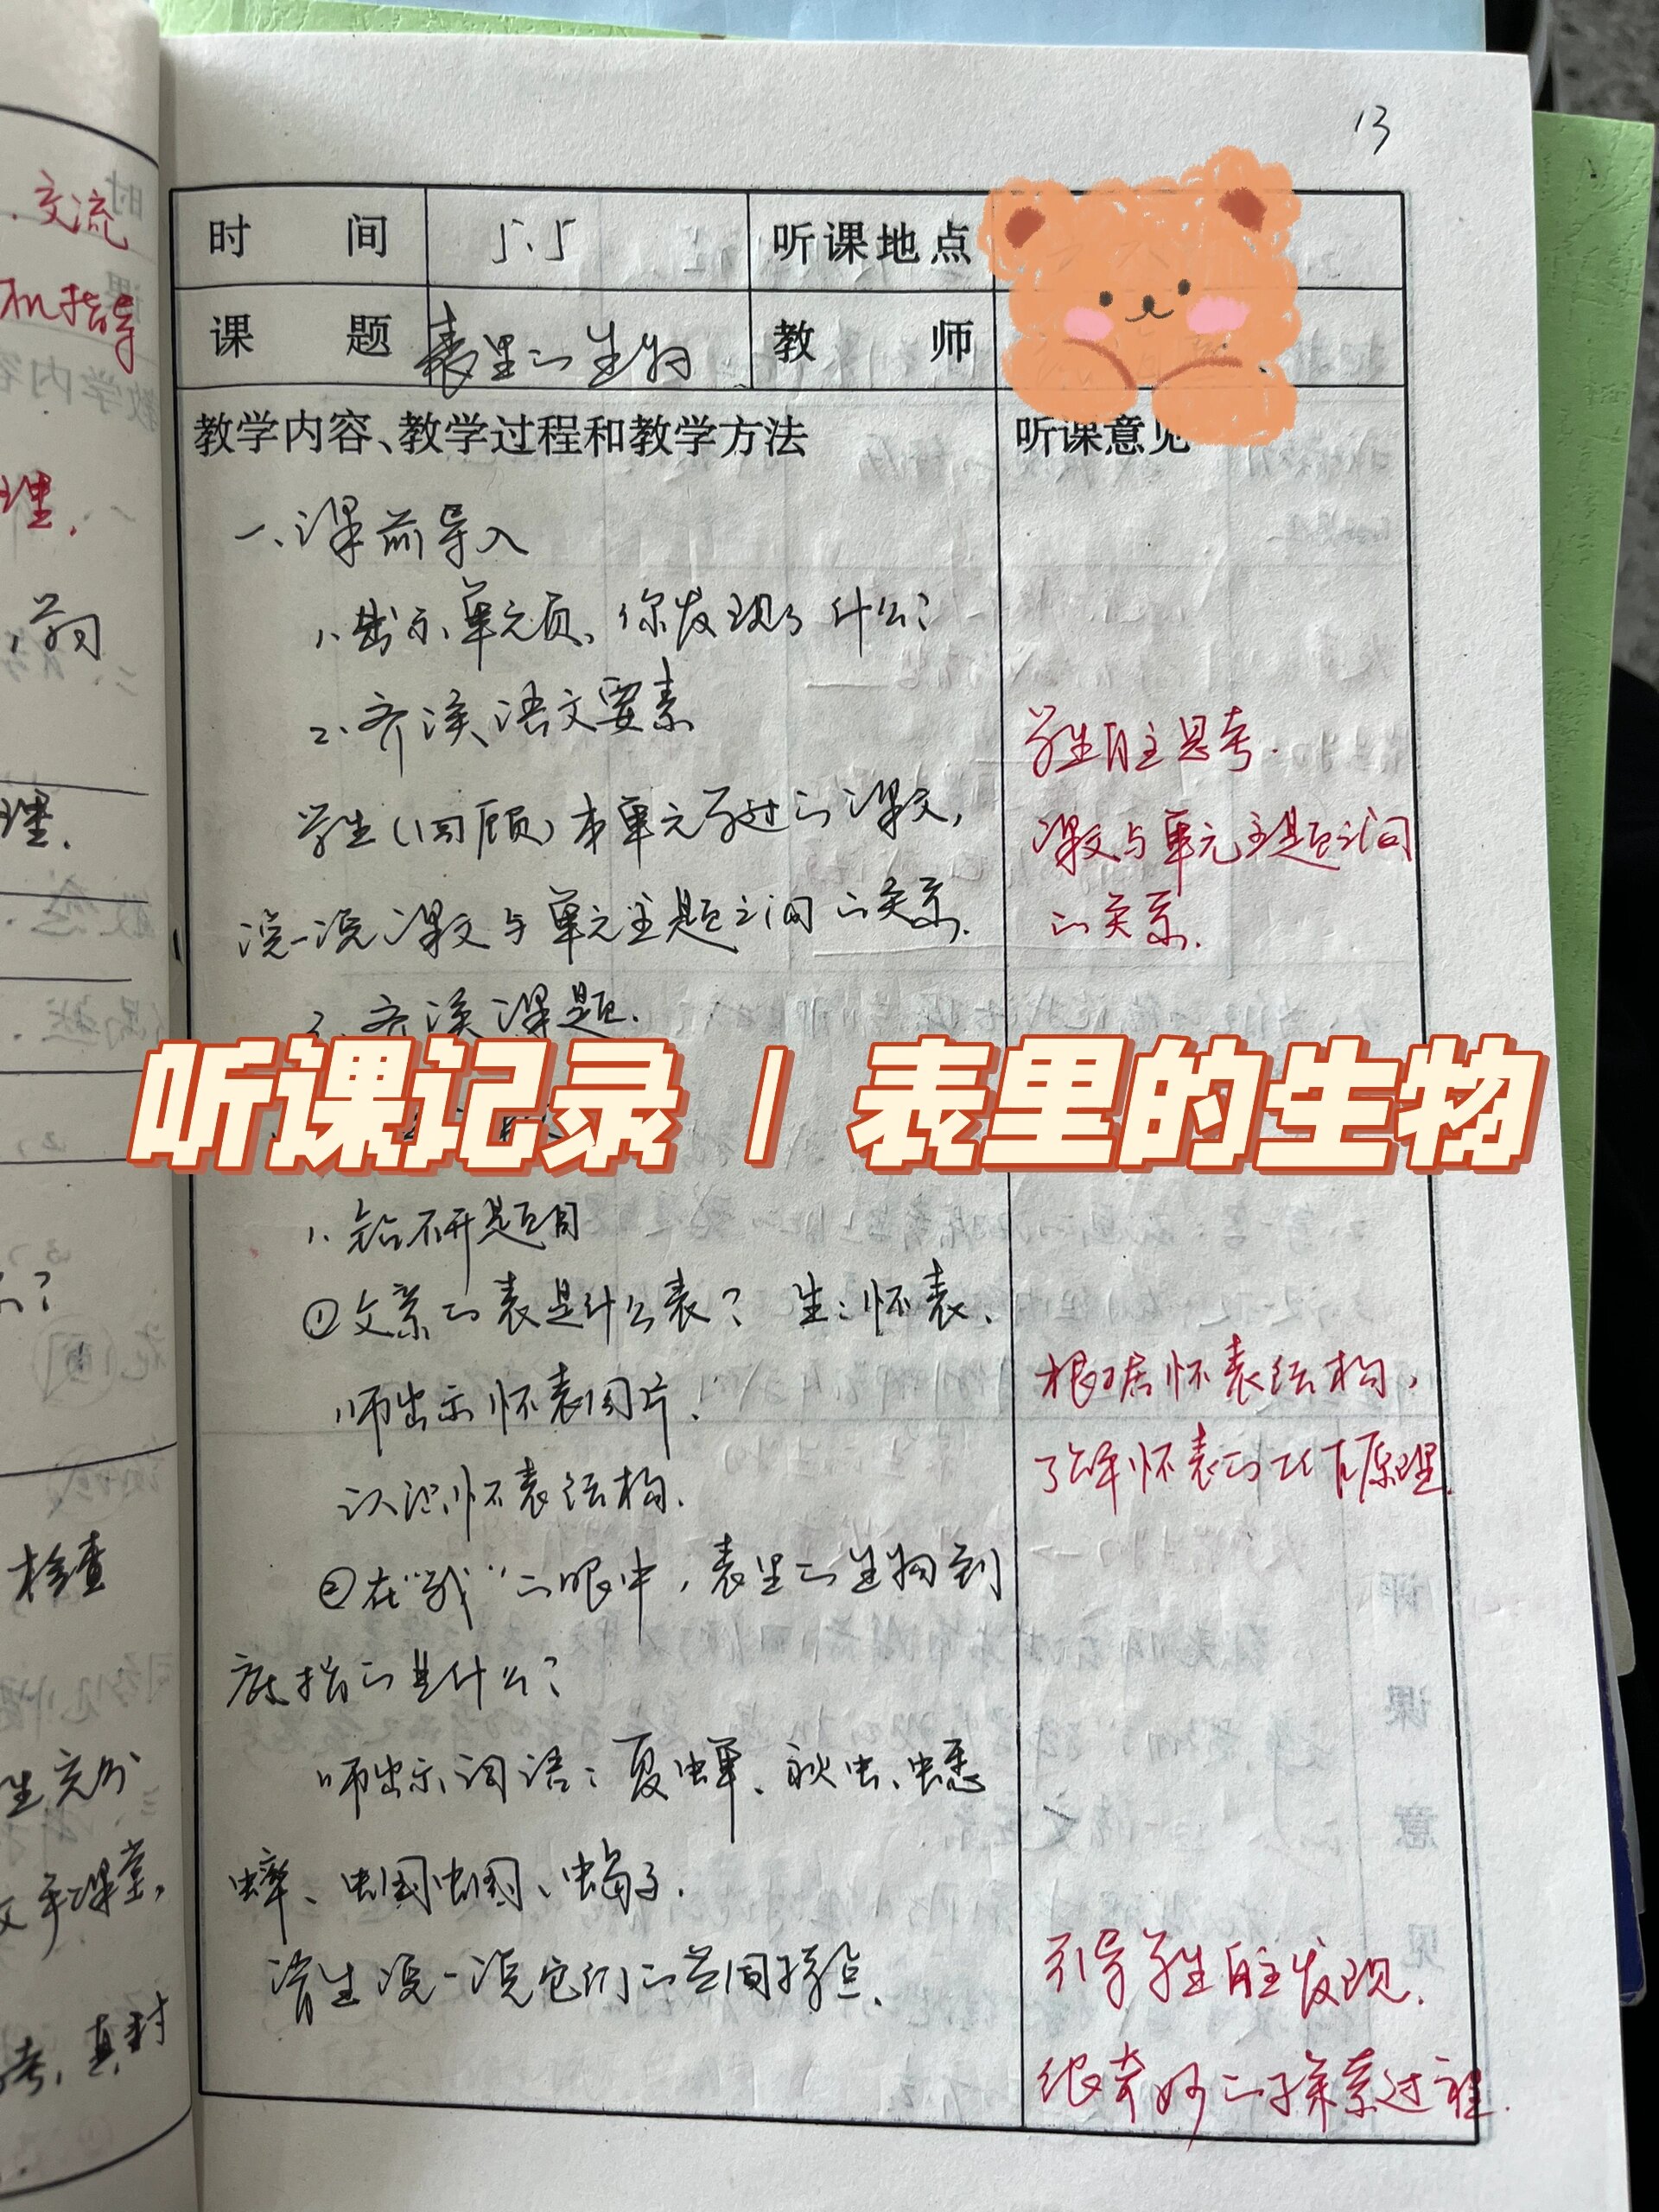 13
.交流
机指导
理.
,学习
理.
?
检查
生充分
文手课堂,
考,真对
时 间 5.5 听课地点
课 题 表里的生物 教 师
教学内容、教学过程和教学方法 听课意见
一、课前导入
1、出示单元页、你发现了什么?
2、齐读语文要素
学生(回顾)本单元学过的课文,
说一说课文与单元主题之间的关系.
学生自主思考.
课文与单元主题之间
的关系.
3、齐读课题.
听课记录 | 表里的生物
1、钻研题目
①文章的表是什么表? 生:怀表、
师出示怀表图片.
认识怀表结构.
根据怀表结构,
了解怀表的工作原理.
②在"我"的眼中,表里的生物到
底指的是什么?
师出示词语:夏蝉、秋虫、蟋
蟀、蝈蝈、蝎子.
请生说一说它们的共同特点.
引导学生自主发现.
很奇妙的探索过程.